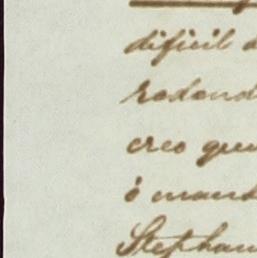 dificil d
redond
creo que
ó mand
Stephan